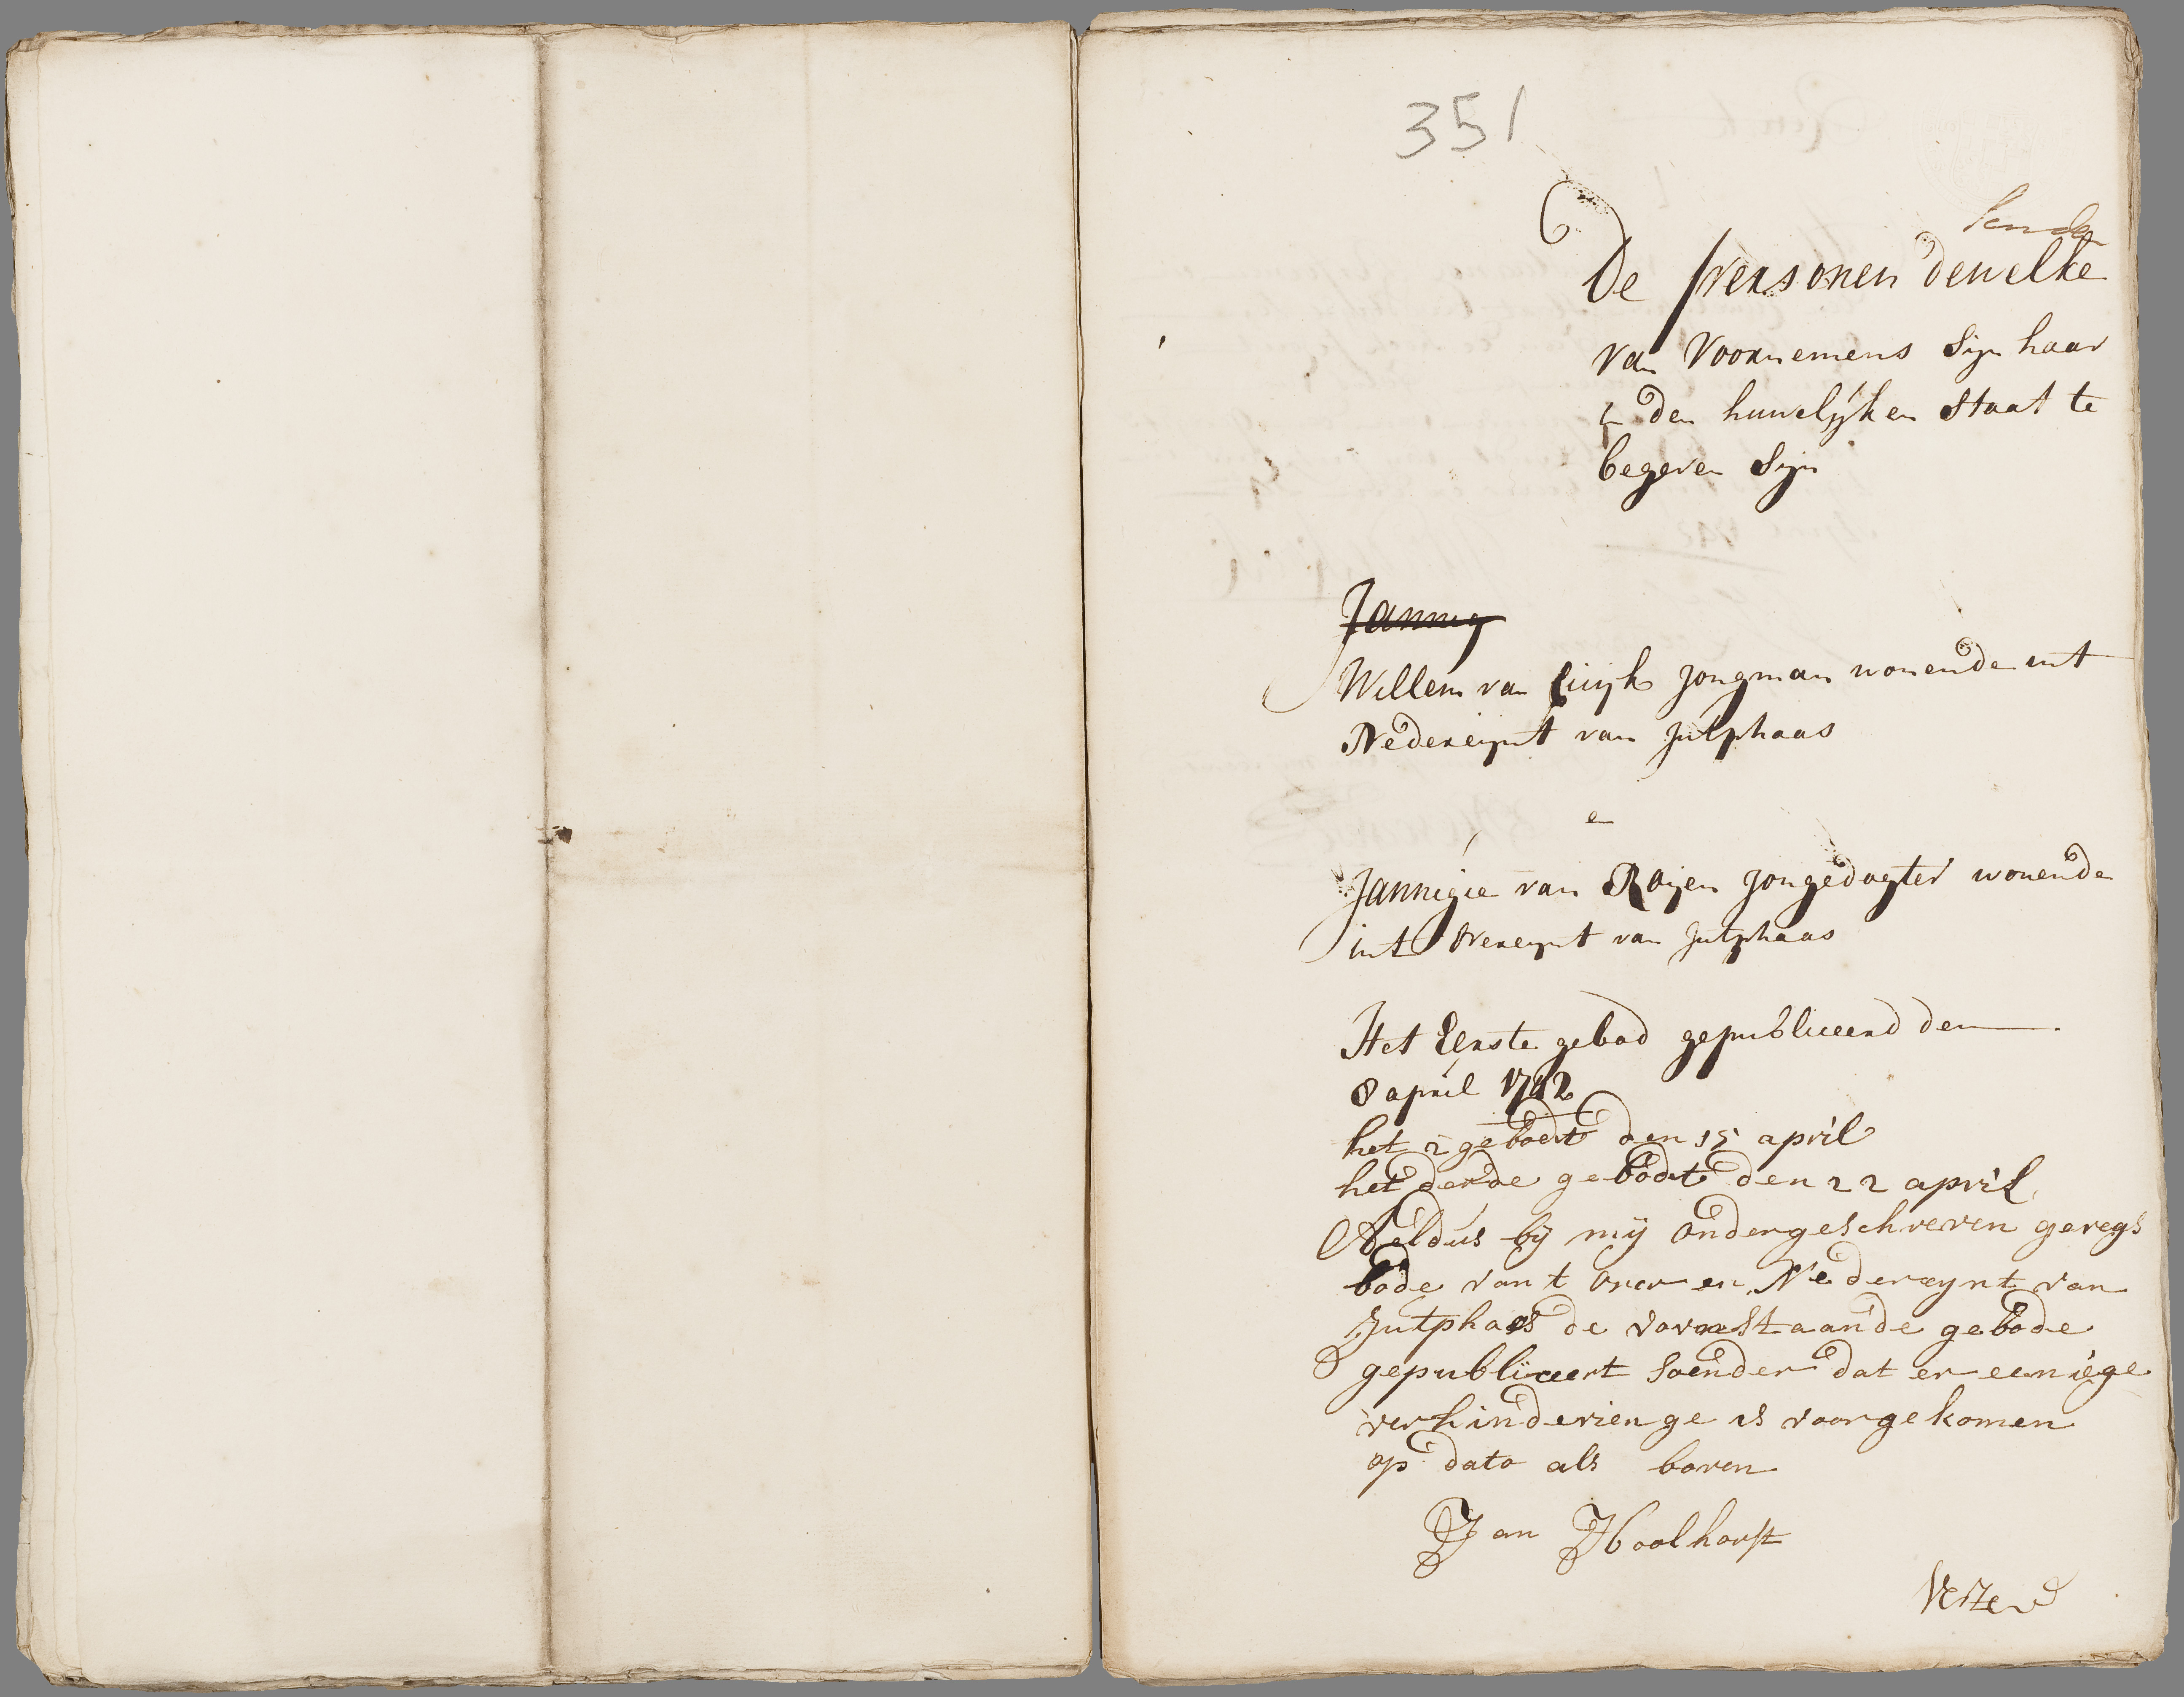 351
De personen dewelke
van voornemens Sijn haar
in den huwelijken Staat te
begeven Sijn
Jannig
Willem van Cuijk jongman wonende int
Nedereijnt van Jutphaas
en
Jannigie van Roijen jongedogter wonende
int overeijnt van Jutphaas
Het Eerste gebod gepubliceerd den
8 april 1742
het 2 geboedt den 15 april
het derde gebodt den 22 april
Aeldus bij mij ondergeschreven geregs
bode van t over en Nedereynt van
Jutphaas de vorenstaande gebode
gepubliceert Soender dat er eeniege
verhinderienge is voorgekomen
op dato als boven
Jan Hoolhorst